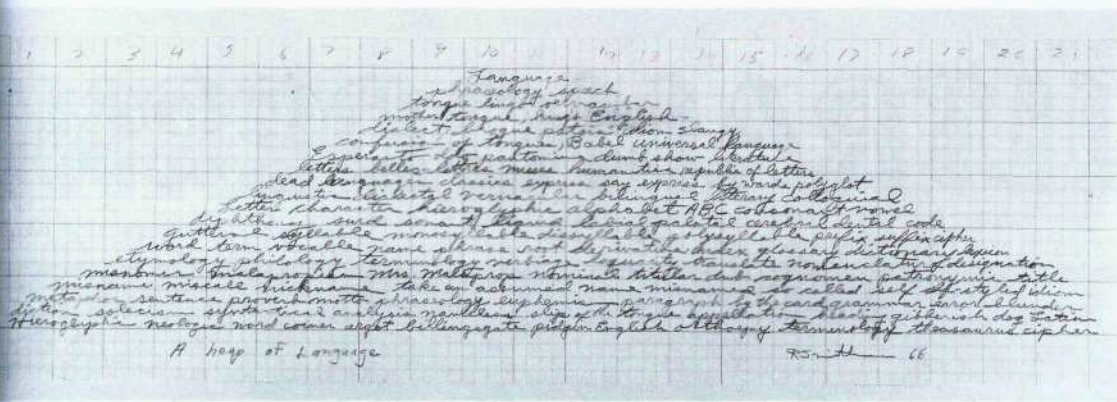 1 2 3 4 5 6 7 8 9 10 12 13 14 15 16 17 18 19 20 21
Language
phraseology speech
tongue lingo vernacular
mother tongue, King's English
dialect brogue patois idiom slangy
confusion of tongues, Babel universal language
Esperanto pantomime dumb show literature
letters belles-lettres muses humanities republic of letters
dead languages classics express say express by words polyglot
linguistics dialectal vernacular bilingual literary colloquial
letter character hieroglyphic alphabet ABC consonant vowel
surd sonant liquid labial palatal cerebral dental code
guttural syllable monosyllable dissyllable polysyllable prefix suffix cipher
word term vocable name phrase root derivative index glossary dictionary lexicon
etymology philology terminology verbiage loquacity translate nomenclature designation
misnomer malapropism Mrs. Malaprop nominal titular dub cognomen patronymic title
misname miscall nickname take an assumed name misnamed so called self styled idiom
metaphor sentence proverb motto phraseology euphemism paragraph by the card grammar error blunder
diction solecism syntactical analysis slip of the tongue gibberish dog Latin
hieroglyphic neologic word coiner argot billingsgate pidgin English orthoepy terminology thesaurus cipher
A heap of Language
RSmithson 66